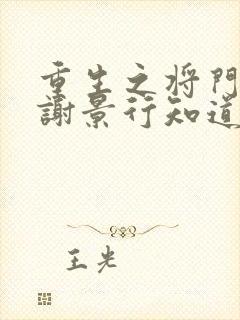 重生之将門
謝景行知道
王光